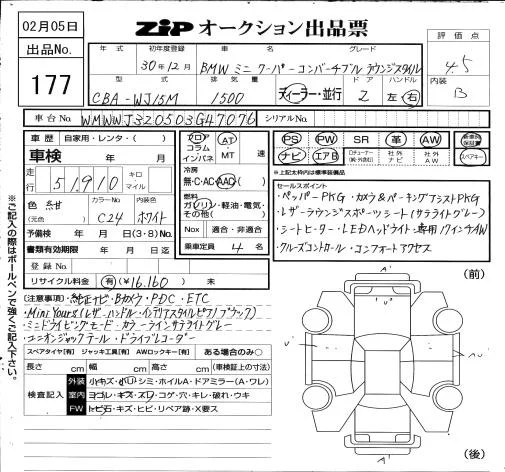 02月05日
出品No.
177
ZIP オークション出品票
評価点
4.5
内装
B
年式 初年度登録 車名 グレード
30年12月 BMW ミニクーパーコンバーチブル ラウンジスタイル
型式 排気量 ハンドル ドア ハンドル
CBA-WJ15M 1500 ディーラー・並行 2 左・右
車台No. WMWWJ320503G47076 シリアルNo.
車歴 自家用・レンタ・( )
車検 年 月
走行 51,910 キロ マイル
色 紺 カラーNo. C24 内装色 ホワイト
(元色)
予備検 年 月 日(3・8)No.
書類有効期限 年 月 日迄
登録No.
リサイクル料金 有 ¥16,160
フロア コラム インパネ AT MT 速
冷房
無・C・AC・AAC・( )
燃料
ガソリン・軽油・電気・その他( )
Nox 適合・非適合
乗車定員 4 名
PS PW SR 革 AW
ナビ エアB 社外ナビ 社外AW スペアキー
※上記太枠内は標準装備品
セールスポイント
・ペッパーPKG・カメラ&パーキングアシストPKG
・レザーラウンジスポーツシート(サテライトグレー)
・シートヒーター・LEDヘッドライト・専用17インチAW
・クルーズコントロール・コンフォートアクセス
(注意事項)・純正ナビ・Bカメラ・PDC・ETC
・Mini Yours(レザーハンドル・インテリアスタイルピアノブラック)
・ミニドライビングモード・カラーラインサテライトグレー
・ユニオンジャックテール・ドライブレコーダー
スペアタイヤ[有] ジャッキ工具[有] AWロックキー[有] ある場合のみ○
長さ cm 幅 cm 高さ cm (車検証上の寸法)
検査記入
外装 小キズ・ハリ・シミ・ホイルA・ドアミラー(A・ワレ)
室内 ヨゴレ・キズ・スレ・コゲ・穴・キレ・破れ・ウキ
FW トビ石・キズ・ヒビ・リペア跡・X要ス
(前)
A'
A'
(後)
※ご記入の際はボールペンで強くご記入下さい。